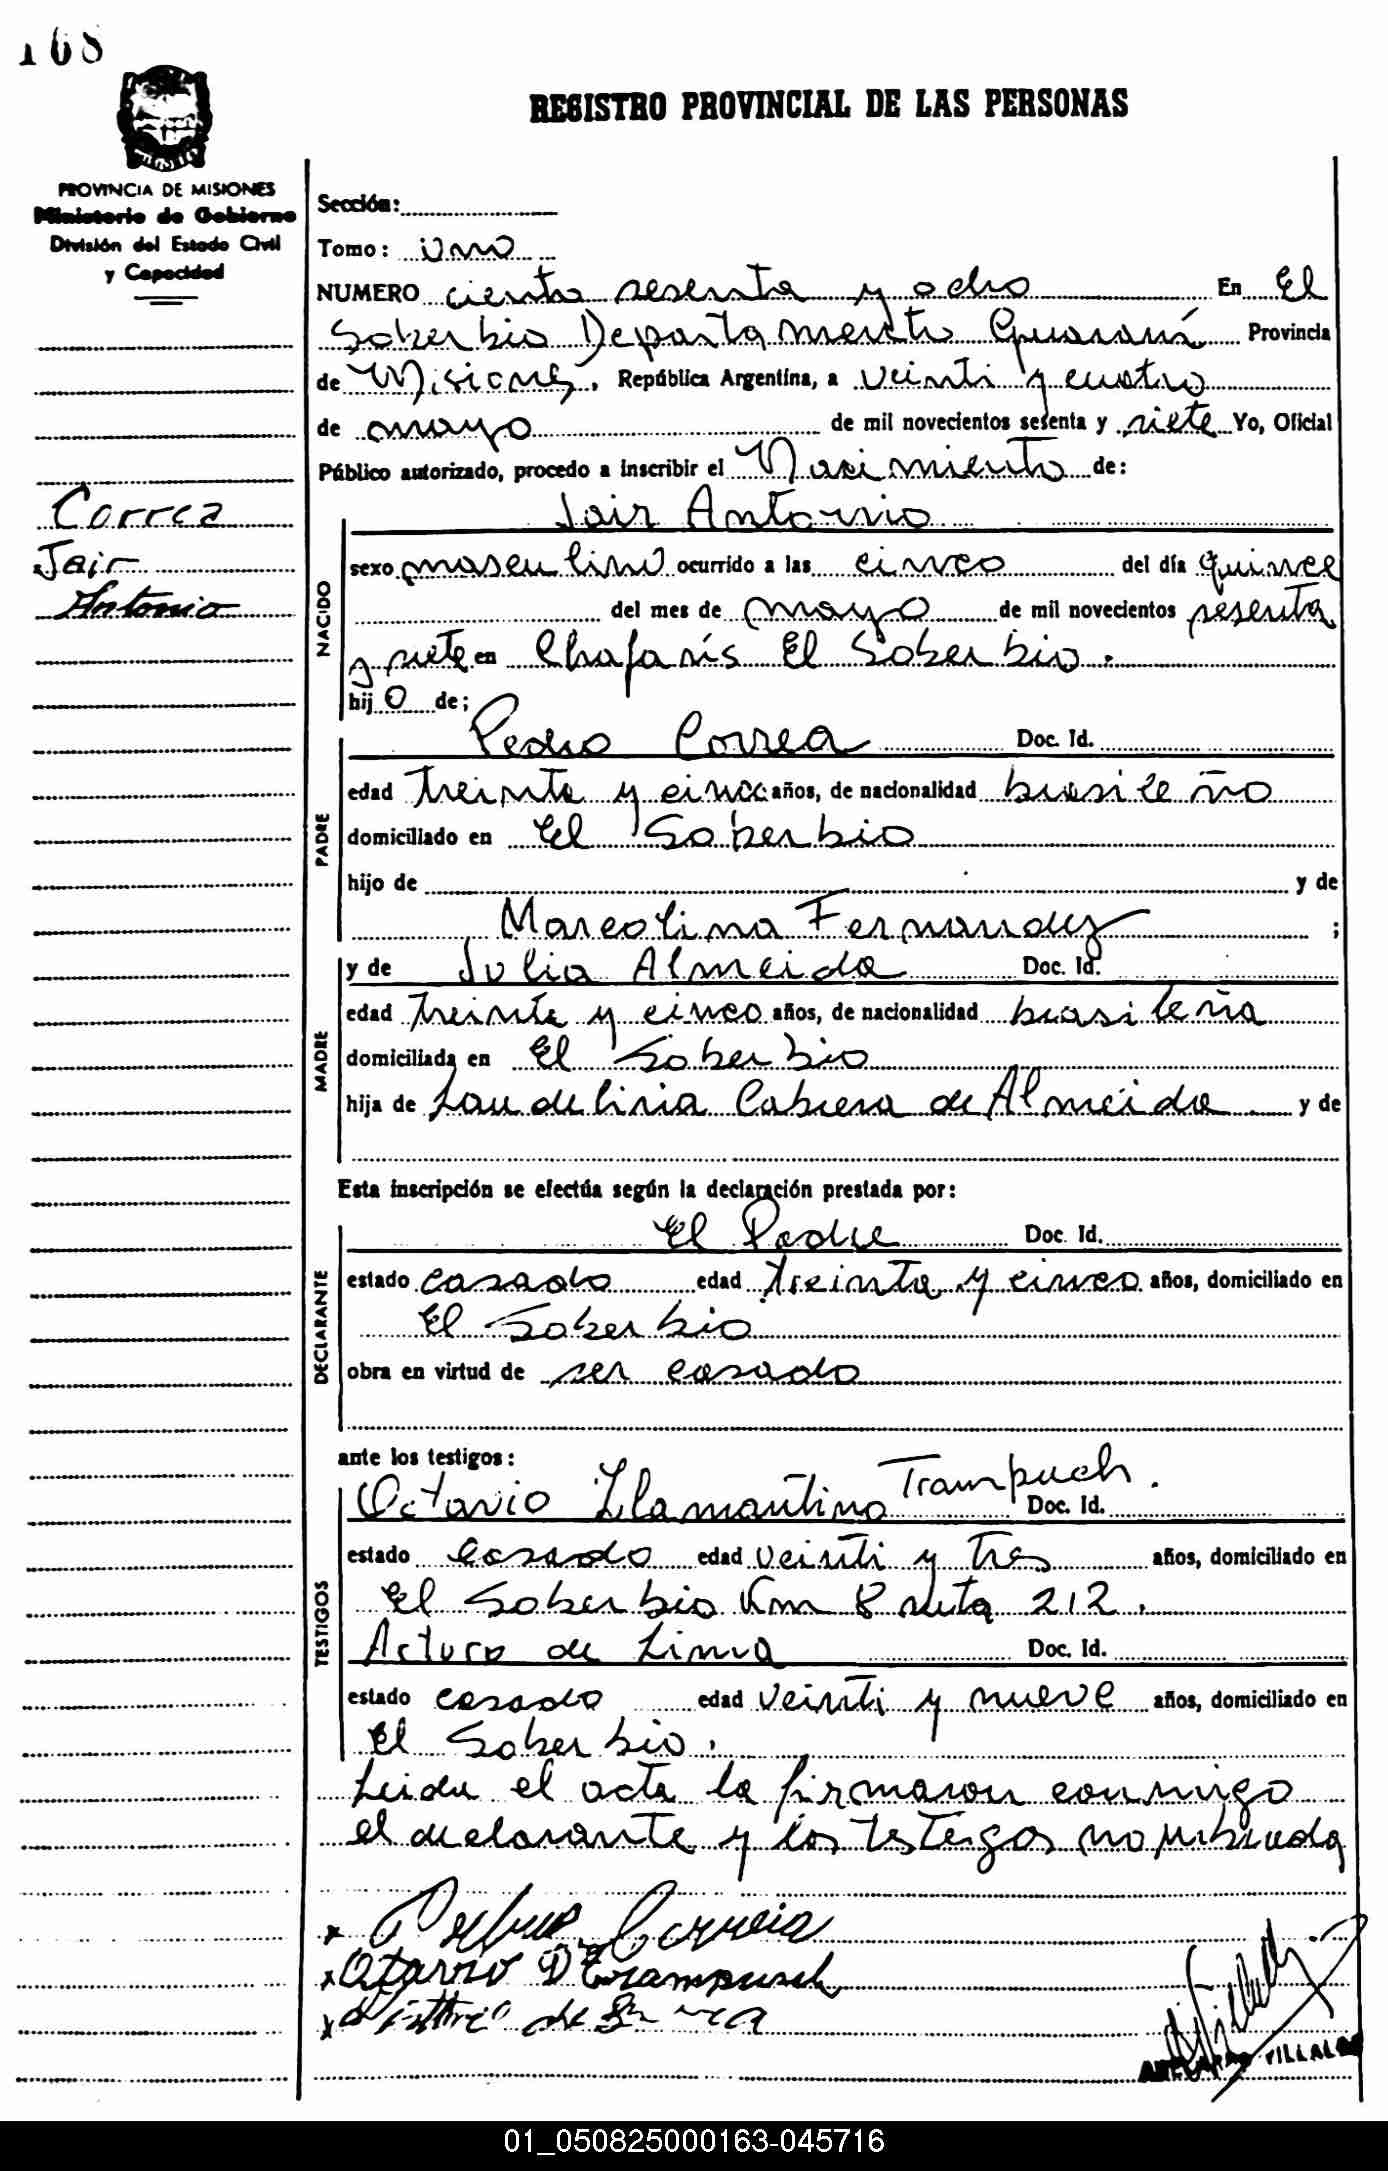 168
REGISTRO PROVINCIAL DE LAS PERSONAS
PROVINCIA DE MISIONES
Ministerio de Gobierno
División del Estado Civil
y Capacidad
Correa
Jair
Antonio
Sección:
Tomo: uno
NUMERO ciento sesenta y ocho En El
Soberbio Departamento Guaraní Provincia
de Misiones, República Argentina, a veinti y cuatro
de mayo de mil novecientos sesenta y siete Yo, Oficial
Público autorizado, procedo a inscribir el Nacimiento de:
Jair Antonio
NACIDO
sexo masculino ocurrido a las cinco del día quince
del mes de mayo de mil novecientos sesenta
y siete en Chafarís El Soberbio.
hijo de;
PADRE
Pedro Correa Doc. Id.
edad treinta y cinco años, de nacionalidad brasileño
domiciliado en El Soberbio
hijo de y de
Marcolina Fernandez ;
MADRE
y de Julia Almeida Doc. Id.
edad treinta y cinco años, de nacionalidad brasileña
domiciliada en El Soberbio
hija de Laudelina Cabrera de Almeida y de
Esta inscripción se efectúa según la declaración prestada por:
DECLARANTE
El Padre Doc. Id.
estado casado edad treinta y cinco años, domiciliado en
El Soberbio
obra en virtud de ser casado
ante los testigos:
TESTIGOS
Octavio Llamantino Trampuch. Doc. Id.
estado casado edad veinti y tres años, domiciliado en
El Soberbio Km 8 ruta 212.
Arturo de Lima Doc. Id.
estado casado edad veinti y nueve años, domiciliado en
El Soberbio.
Leida el acta la firmaron conmigo
el declarante y los testigos nombrados
x Correia
x Otavio D Trampusch
x de
VILLALBA
01_050825000163-045716